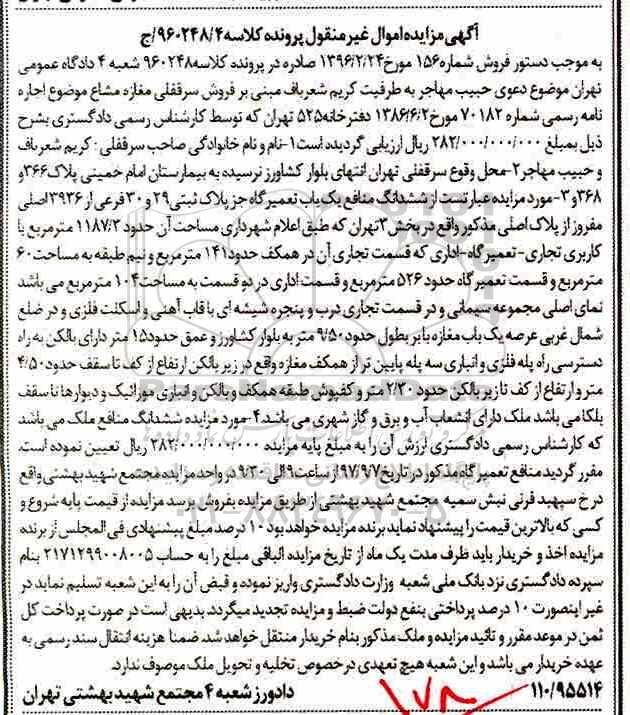 آگهی مزایده اموال غیر منقول پرونده کلاسه ۹۶۰۲۴۸/۴/ج
به موجب دستور فروش شماره۱۵۶ مورخ۱۳۹۶/۲/۲۴ صادره در پرونده کلاسه۹۶۰۲۴۸ شعبه ۴ دادگاه عمومی
تهران موضوع دعوی حبیب مهاجر به طرفیت کریم شعرباف مبنی بر فروش سرقفلی مغازه مشاع موضوع اجاره
نامه رسمی شماره ۷۰۱۸۲ مورخ۱۳۸۶/۶/۲ دفترخانه۵۲۵ تهران که توسط کارشناس رسمی دادگستری بشرح
ذیل بمبلغ ۲۸۲/۰۰۰/۰۰۰/۰۰۰ ریال ارزیابی گردیده است۱-نام و نام خانوادگی صاحب سرقفلی : کریم شعرباف
و حبیب مهاجر۲-محل وقوع سرقفلی تهران انتهای بلوار کشاورز نرسیده به بیمارستان امام خمینی پلاک۳۶۶و
۳۶۸و ۳-مورد مزایده عبارتست از ششدانگ منافع یک باب تعمیرگاه جز پلاک ثبتی۲۹ و ۳۰ فرعی از ۳۹۳۶اصلی
مفروز از پلاک اصلی مذکور واقع در بخش ۳تهران که طبق اعلام شهرداری مساحت آن حدود ۱۱۸۷/۳ مترمربع با
کاربری تجاری-تعمیرگاه-اداری که قسمت تجاری آن در همکف حدود۱۴۱ مترمربع و نیم طبقه به مساحت۶۰
مترمربع و قسمت تعمیرگاه حدود ۵۲۶ مترمربع و قسمت اداری در دو قسمت به مساحت۱۰۴ مترمربع می باشد
نمای اصلی مجموعه سیمانی و در قسمت تجاری درب و پنجره شیشه ای با قاب آهنی و اسکلت فلزی و در ضلع
شمال غربی عرصه یک باب مغازه با بر بطول حدود۹/۵۰ متر به بلوار کشاورز و عمق حدود۱۵ متر دارای بالکن به راه
دسترسی راه پله فلزی و انباری سه پله پایین تر از همکف مغازه واقع در زیر بالکن ارتفاع از کف تا سقف حدود ۴/۵۰
متر و ارتفاع از کف تا زیر بالکن حدود ۲/۳۰ متر و کفپوش طبقه همکف و بالکن و انباری موزائیک و دیوارها تا سقف
بلکا می باشد ملک دارای انشعاب آب و برق و گاز شهری می باشد.۴-مورد مزایده ششدانگ منافع ملک می باشد
که کارشناس رسمی دادگستری ارزش آن را به مبلغ پایه مزایده ۲۸۲/۰۰۰/۰۰۰/۰۰۰ ریال تعیین نموده است.
مقرر گردید منافع تعمیرگاه مذکور در تاریخ ۹۷/۹/۷ از ساعت۹ الی ۹/۳۰ در واحد مزایده مجتمع شهید بهشتی واقع
در خ سپهبد قرنی نبش سمیه مجتمع شهید بهشتی از طریق مزایده بفروش برسد مزایده از قیمت پایه شروع و
کسی که بالاترین قیمت را پیشنهاد نماید برنده مزایده خواهد بود ۱۰ درصد مبلغ پیشنهادی فی المجلس از برنده
مزایده اخذ و خریدار باید ظرف مدت یک ماه از تاریخ مزایده الباقی مبلغ را به حساب ۲۱۷۱۲۹۹۰۰۸۰۰۵ بنام
سپرده دادگستری نزد بانک ملی شعبه وزارت دادگستری واریز نموده و قبض آن را به این شعبه تسلیم نماید در
غیر اینصورت ۱۰ درصد پرداختی بنفع دولت ضبط و مزایده تجدید میگردد. بدیهی است در صورت پرداخت کل
ثمن در موعد مقرر و تائید مزایده و ملک مذکور بنام خریدار منتقل خواهد شد. ضمنا هزینه انتقال سند رسمی به
عهده خریدار می باشد و این شعبه هیچ تعهدی در خصوص تخلیه و تحویل ملک موصوف ندارد.
۱۱۰/۹۵۵۱۴ دادورز شعبه ۴ مجتمع شهید بهشتی تهران
۱۷۸